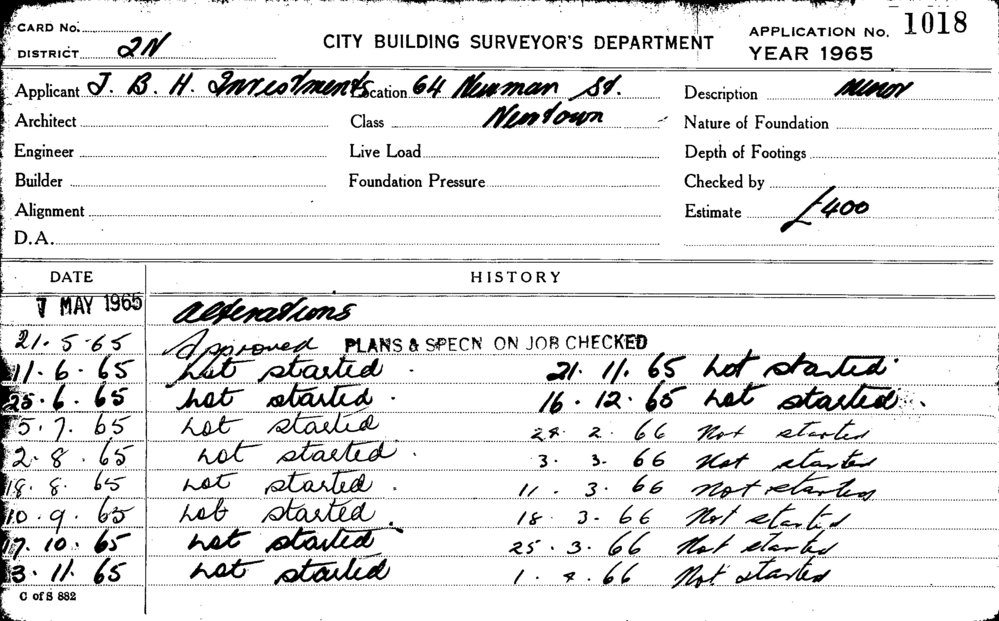 CARD No.
DISTRICT 2N
CITY BUILDING SURVEYOR'S DEPARTMENT
APPLICATION No. 1018
YEAR 1965
Applicant J. B. H. Investments Location 64 Newman St. Description Minor
Architect Class Newtown Nature of Foundation
Engineer Live Load Depth of Footings
Builder Foundation Pressure Checked by
Alignment Estimate £400
D.A.
DATE HISTORY
7 MAY 1965 Alterations
21. 5. 65 Approved PLANS & SPECN ON JOB CHECKED
11. 6. 65 Not started 21. 11. 65 Not started
25. 6. 65 Not started. 16. 12. 65 Not started.
5. 7. 65 Not started 28. 2. 66 Not started
2. 8. 65 Not started. 3. 3. 66 Not started
18. 8. 65 Not started. 11. 3. 66 Not started
10. 9. 65 Not started. 18 3. 66 Not started
17. 10. 65 Not started 25. 3. 66 Not started
3. 11. 65 Not started 1. 4. 66 Not started
C of S 882